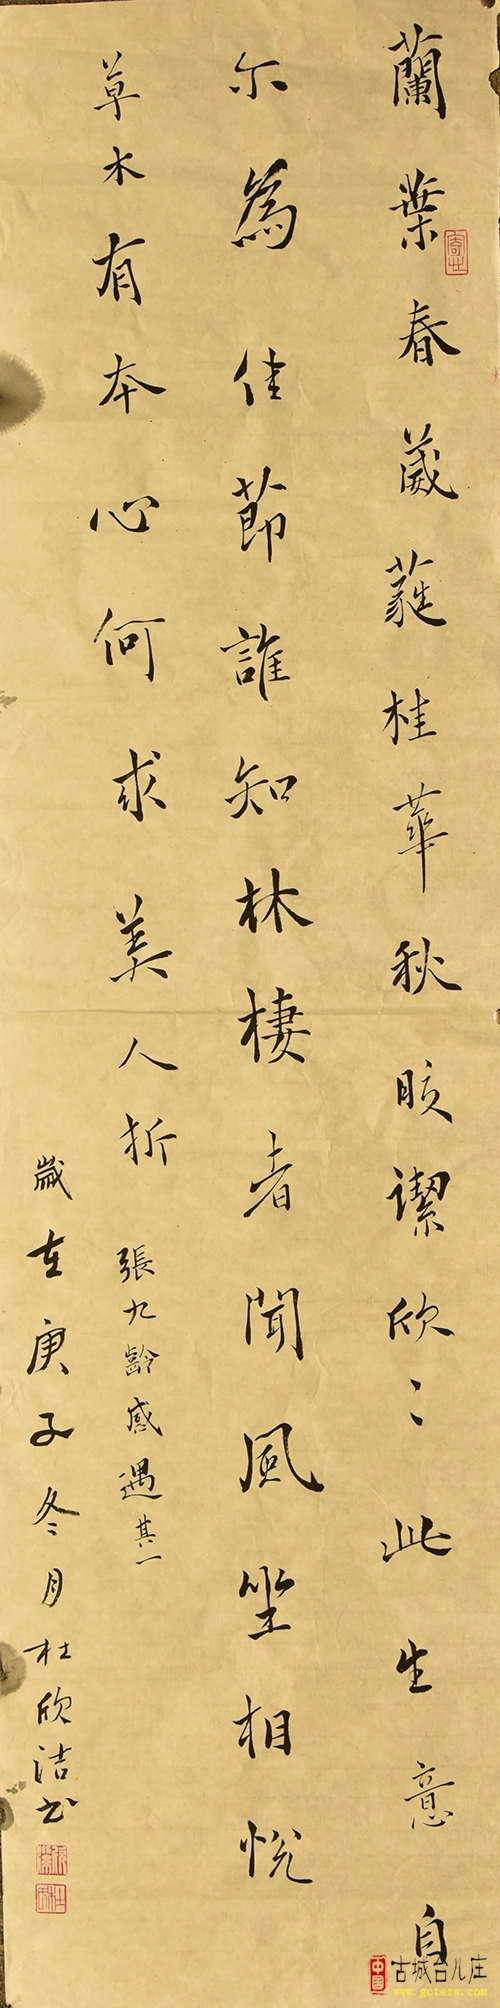 蘭葉春葳蕤桂華秋晈潔欣〻此生意自
尔為佳節誰知林棲者聞風坐相悅
草木有本心何求美人折
張九齡感遇其一
歲在庚子冬月杜欣洁书
中国
古城台儿庄
www.gctezw.com